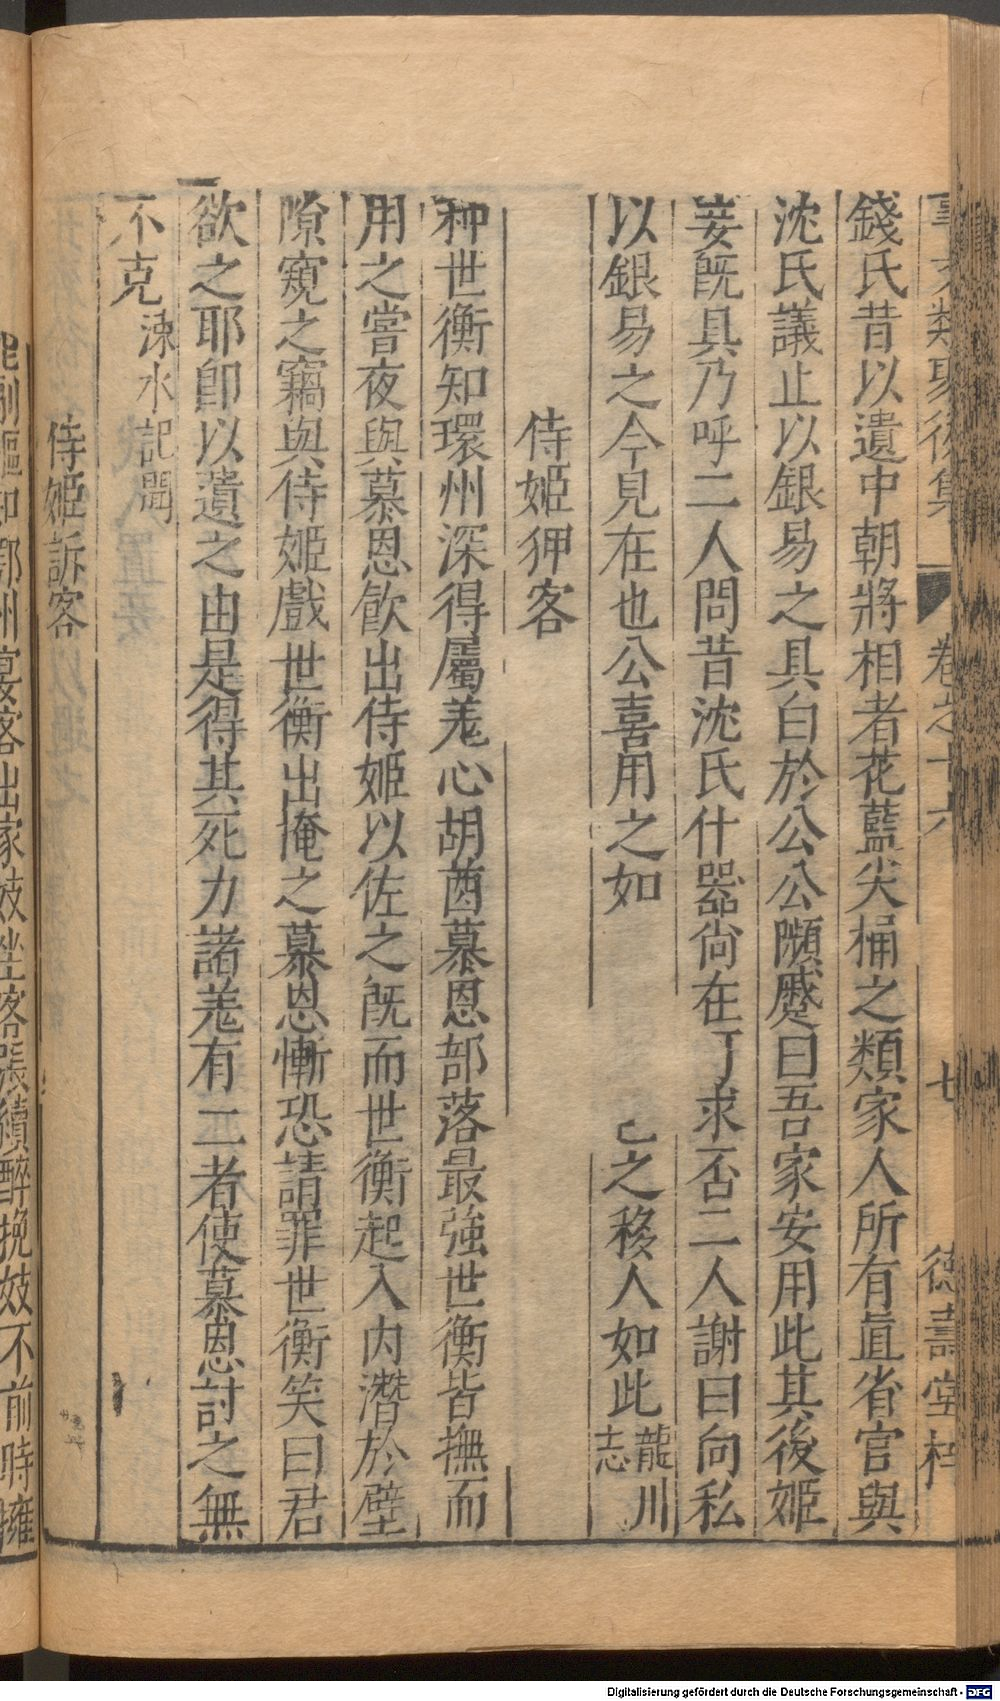 事文類聚後集 卷之十六 七 德壽堂梓
錢氏昔以遺中朝將相者花藍尖桶之類家人所有直省官與
沈氏議止以銀易之具白於公公顰蹙曰吾家安用此其後姬
妾既具乃呼二人問昔沈氏什器尙在可求否二人謝曰向私
以銀易之今見在也公喜用之如 己之移人如此龍川志
侍姬狎客
种世衡知環州深得屬羗心胡酋慕恩部落最強世衡皆撫而
用之嘗夜與慕恩飮出侍姬以佐之旣而世衡起入内潛於壁
隙窺之竊與侍姬戲世衡出掩之慕恩慚恐請罪世衡笑曰君
欲之耶卽以遺之由是得其死力諸羗有二者使慕恩討之無
不克涑水記聞
侍姬訴客
知郢州宴客出家妓坐客張續醉挽妓不前時擁
Digitalisierung gefördert durch die Deutsche Forschungsgemeinschaft - DFG